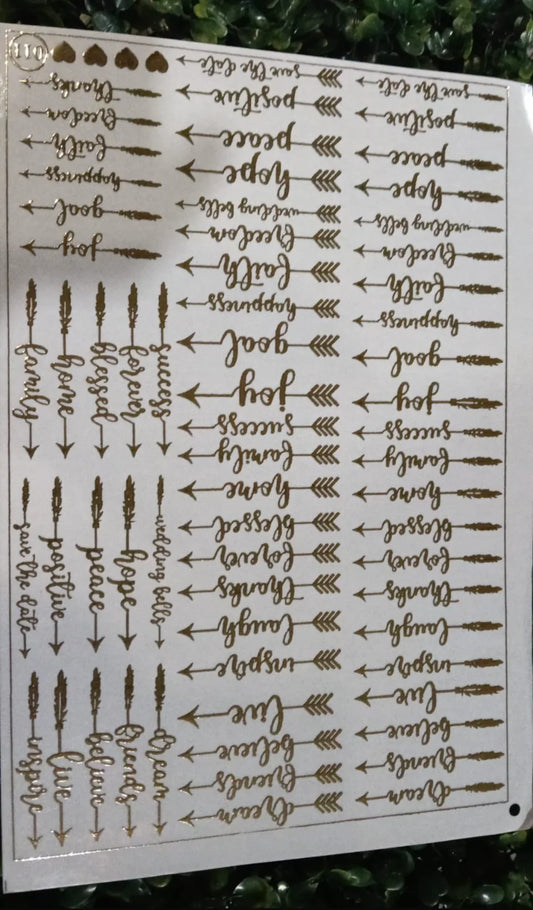 dream
friends
believe
live
inspire
laugh
thanks
forever
blessed
home
family
success
joy
goal
happiness
faith
freedom
wedding bells
hope
peace
positive
save the date
dream
friends
believe
live
inspire
laugh
thanks
forever
blessed
home
family
success
joy
goal
happiness
faith
freedom
wedding bells
hope
peace
positive
save the date
dream
friends
believe
live
inspire
wedding bells
hope
peace
positive
save the date
success
forever
blessed
home
family
joy
goal
happiness
faith
freedom
thanks
110